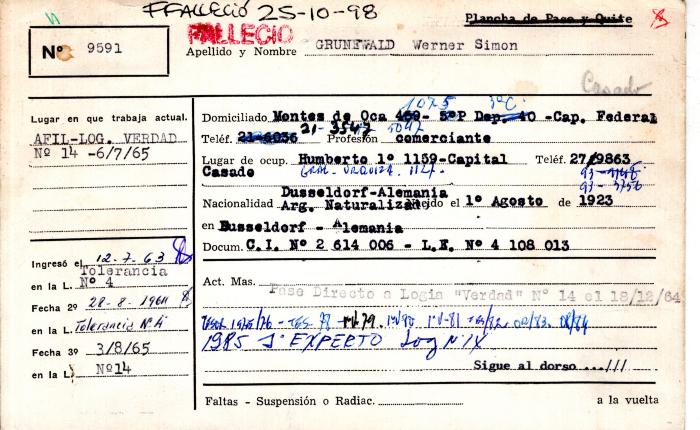 FALLECIÓ 25-10-98
Plancha de Pase y Quite
FALLECIO
Nº 9591
Apellido y Nombre GRUNEWALD Werner Simon
Casado
1075 3ºC
Lugar en que trabaja actual.
AFIL-LOG. VERDAD
Nº 14 -6/7/65
Domiciliado Montes de Oca 469- 5ºP Dep. 40 -Cap. Federal
21-3547
Teléf. 21-6036 Profesión comerciante
Lugar de ocup. Humberto 1º 1159-Capital Teléf. 27/9863
Casado GRAL. URQUIZA 1127
93-3756
Dusseldorf-Alemania
Nacionalidad Arg. Naturalizado Nacido el 1º Agosto de 1923
en Dusseldorf - Alemania
Docum. C.I. Nº 2 614 006 - L.E. Nº 4 108 013
Ingresó el 12-7-63
en la L. Tolerancia Nº 4
Fecha 2º 28-8-1964
en la L. Tolerancia Nº 4
Fecha 3º 3/8/65
en la L. Nº14
Act. Mas.
Pase Directo a Logia "Verdad" Nº 14 el 18/12/64
1975/76 - 78 79 80 81 82 83 84
1985 1º EXPERTO Log Nº IX
Sigue al dorso .../// 
Faltas - Suspensión o Radiac. a la vuelta